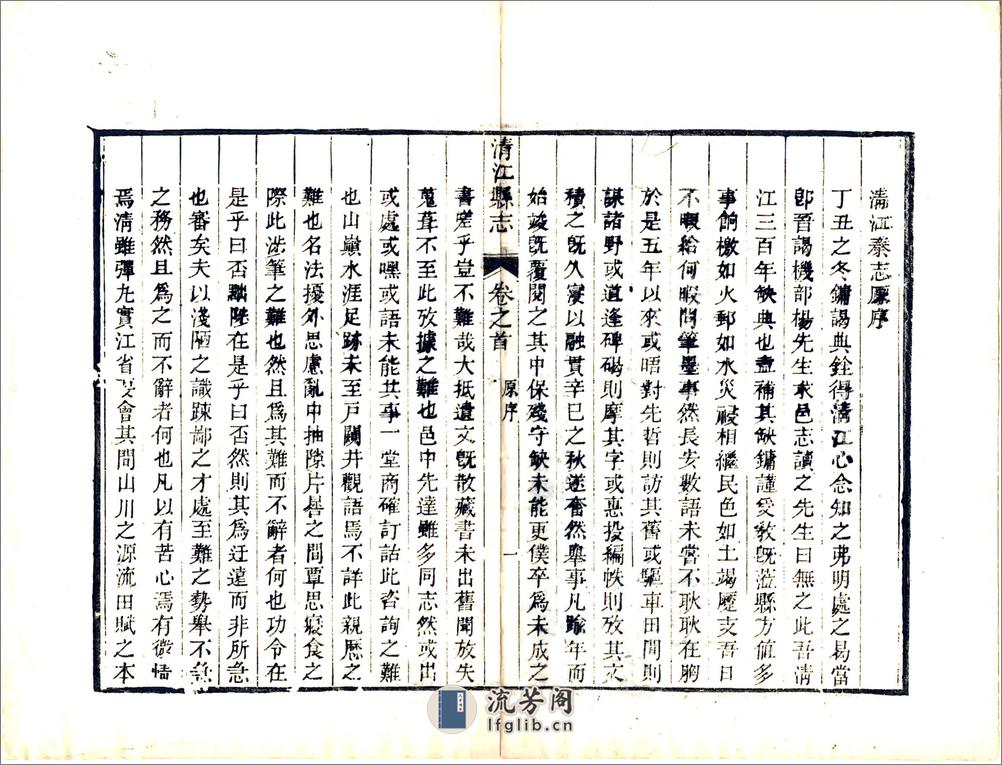 清江秦志原序
丁丑之冬鏞謁典銓得清江心念知之弗明處之易當
卽晉謁機部楊先生求邑志讀之先生曰無之此吾清
江三百年缺典也盍補其缺鏞謹受敎旣蒞縣方值多
事餉檄如火郵如水災祲相繼民色如土竭蹙支吾日
不暇給何暇問筆墨事然長安數語未嘗不耿耿在胸
於是五年以來或晤對先哲則訪其舊或驅車田間則
諏諸野或道逢碑碣則摩其字或惠投編帙則攷其文
積之旣久寖以融貫辛巳之秋遂奮然舉事凡踰年而
始竣旣覆閱之其中保殘守缺未能更僕卒爲未成之
清江縣志 卷之首 原序 一
書嗟乎豈不難哉大抵遺文旣散藏書未出舊聞放失
蒐葺不至此攷據之難也邑中先達雖多同志然或出
或處或嘿或語未能共事一堂商確訂詁此咨詢之難
也山巔水涯足跡未至戸闢井觀語焉不詳此親歷之
難也名法擾外思慮亂中抽隙片晷之間覃思寢食之
際此涉筆之難也然且爲其難而不辭者何也功令在
是乎曰否黜陟在是乎曰否然則其爲迂遠而非所急
也審矣夫以淺陋之識踈鄙之才處至難之勢舉不急
之務然且爲之而不辭者何也凡以有苦心焉有微情
焉清雖彈丸實江省孔會其問山川之源流田賦之本
流芳阁
lfglib.cn